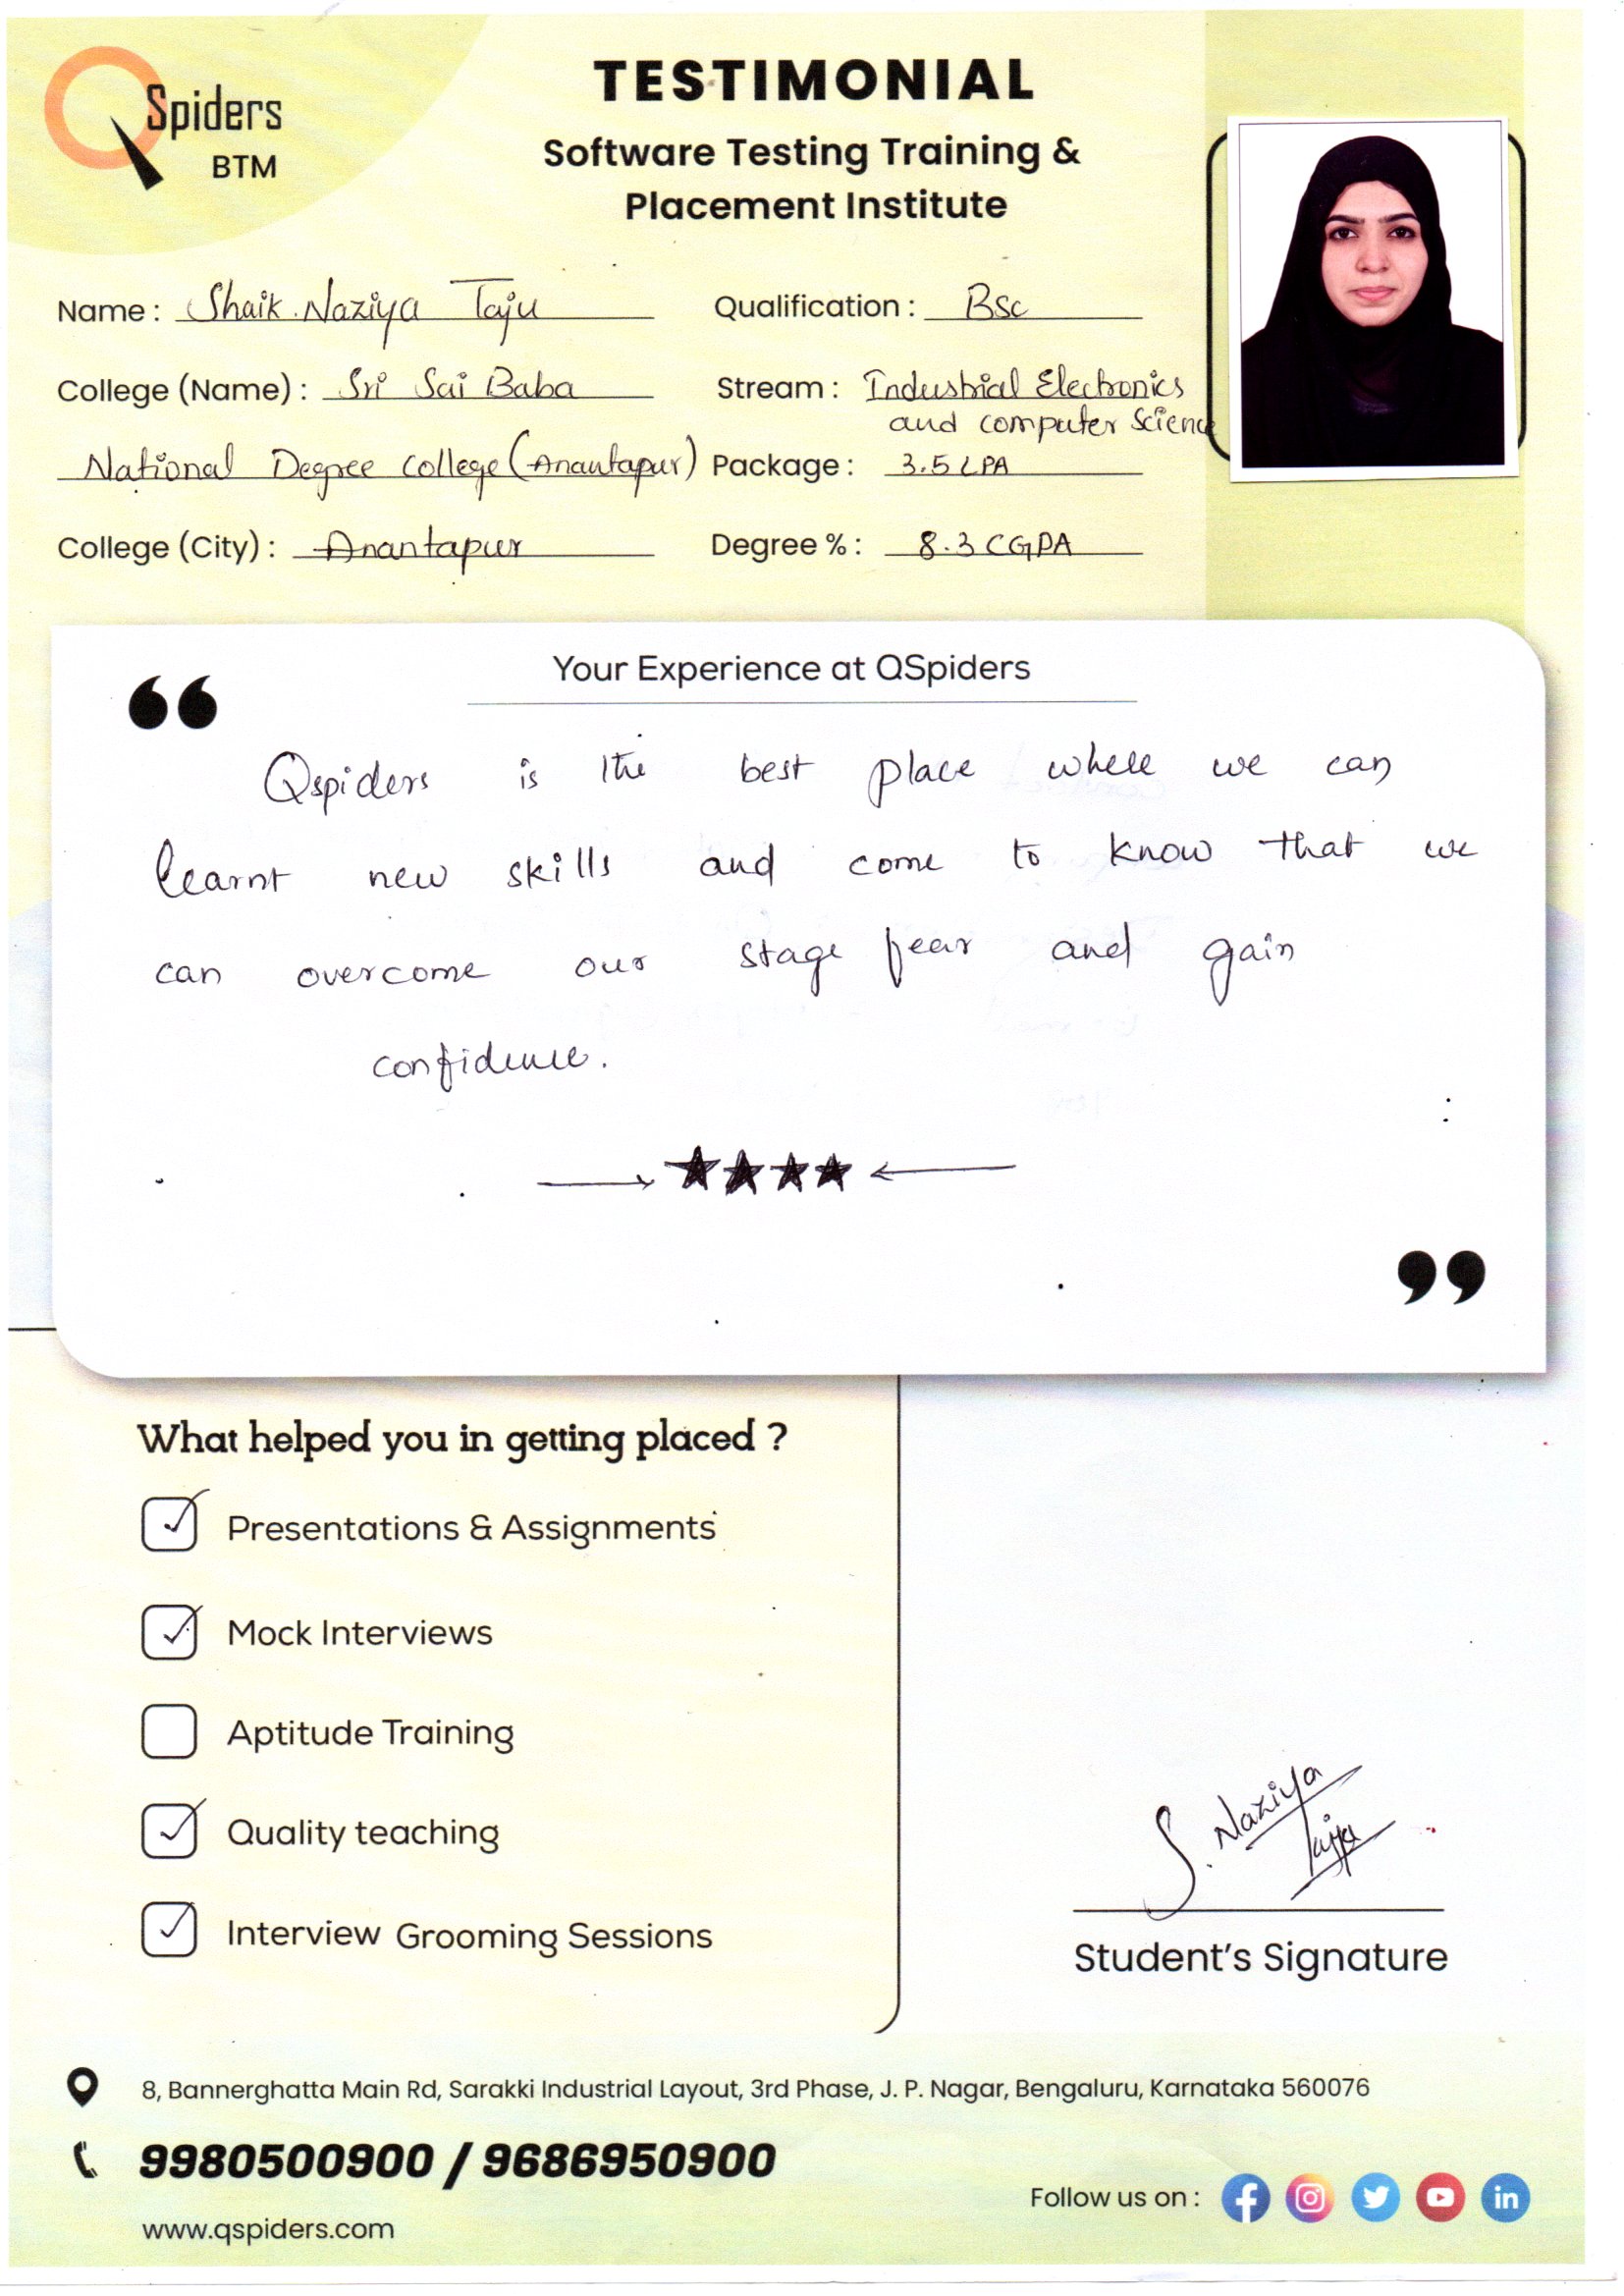 QSpiders
BTM
TESTIMONIAL
Software Testing Training &
Placement Institute
Name : Shaik. Naziya Taju
Qualification : Bsc
College (Name) : Sri Sai Baba
Stream : Industrial Electronics
and computer Science
National Degree College (Anantapur)
Package : 3.5 LPA
College (City) : Anantapur
Degree % : 8.3 CGPA
Your Experience at QSpiders
Qspiders is the best place where we can
learnt new skills and come to know that we
can overcome our stage fear and gain
confidence.
What helped you in getting placed ?
Presentations & Assignments
Mock Interviews
Aptitude Training
Quality teaching
Interview Grooming Sessions
S. Naziya
Taju
Student's Signature
8, Bannerghatta Main Rd, Sarakki Industrial Layout, 3rd Phase, J. P. Nagar, Bengaluru, Karnataka 560076
9980500900 / 9686950900
www.qspiders.com
Follow us on :